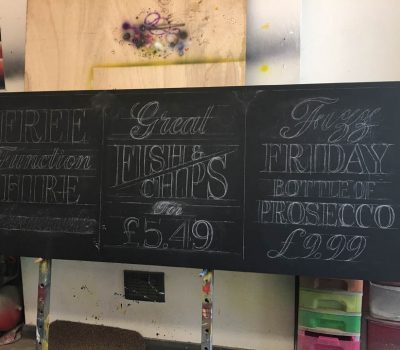 FREE
Function
HIRE
Great
FISH &
CHIPS
For
£5.49
Fizz
FRIDAY
BOTTLE OF
PROSECCO
£9.99